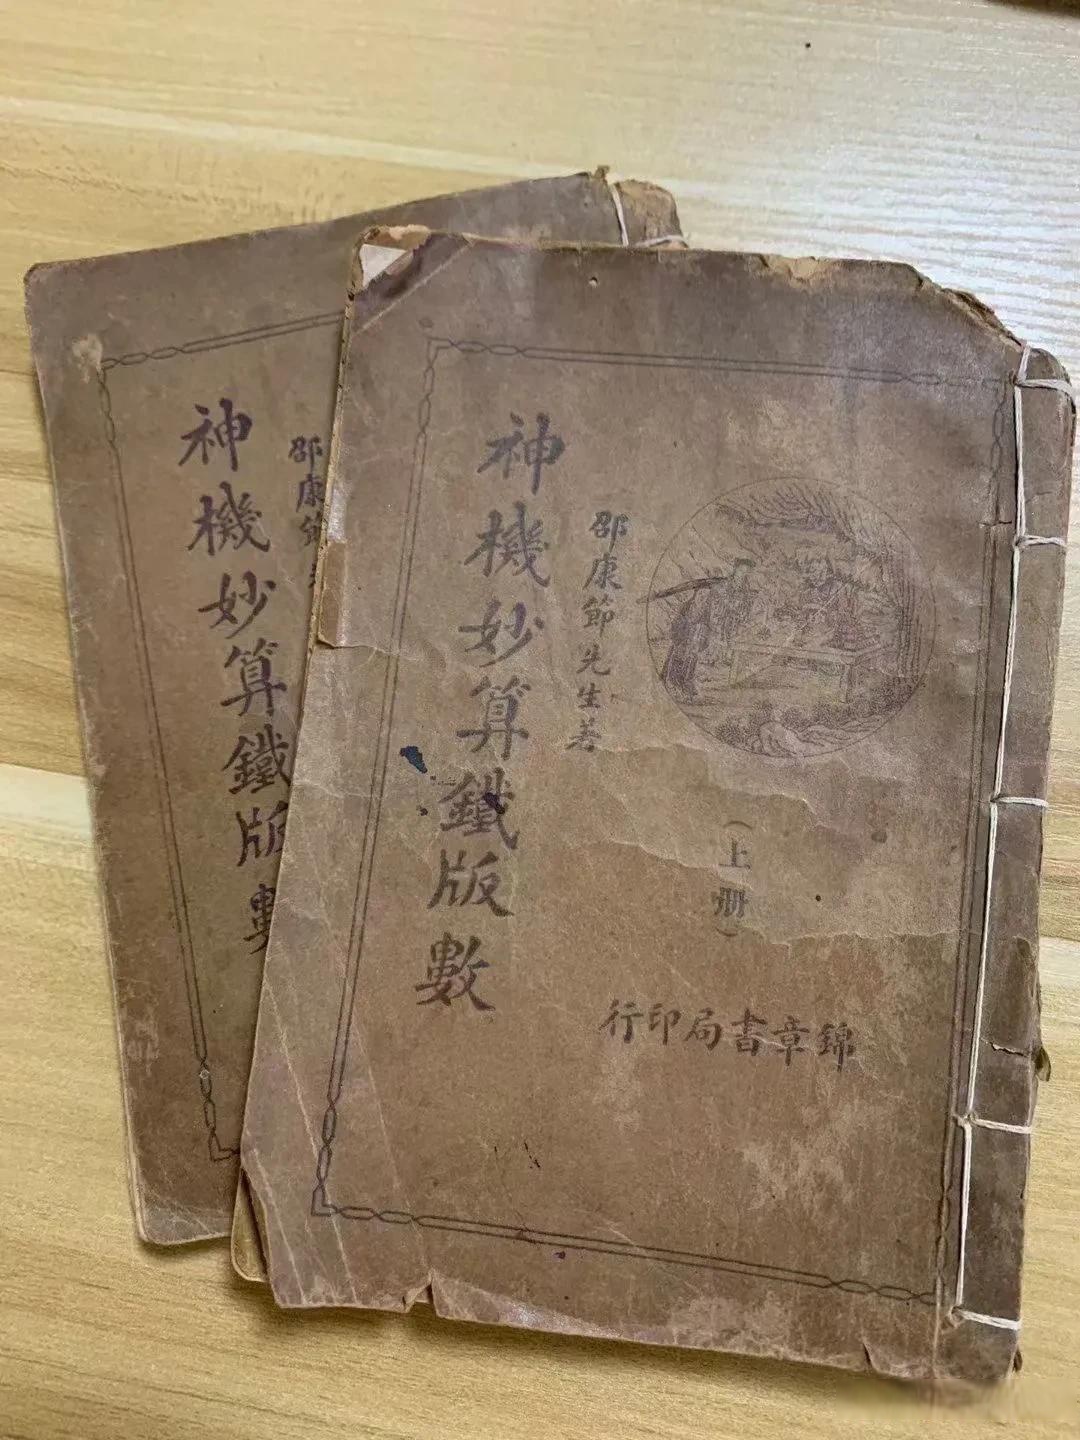 神機妙算鐵版數
邵康節先生著
(上册)
錦章書局印行
神機妙算鐵版數
邵康節